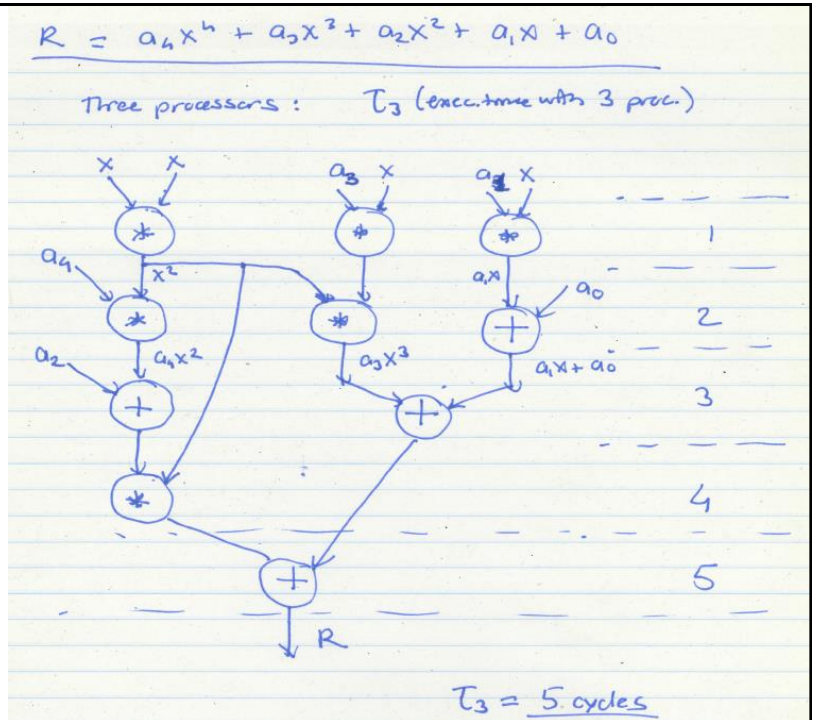 R = a₄x⁴ + a₃x³ + a₂x² + a₁x + a₀
Three processors : T₃ (exec. time with 3 proc.)
x x a₃ x a₁ x
* * * 1
a₄ x² a₁x a₀
* * + 2
a₂ a₄x² a₃x³ a₁x + a₀
+ + 3
* 4
+ 5
R
T₃ = 5 cycles